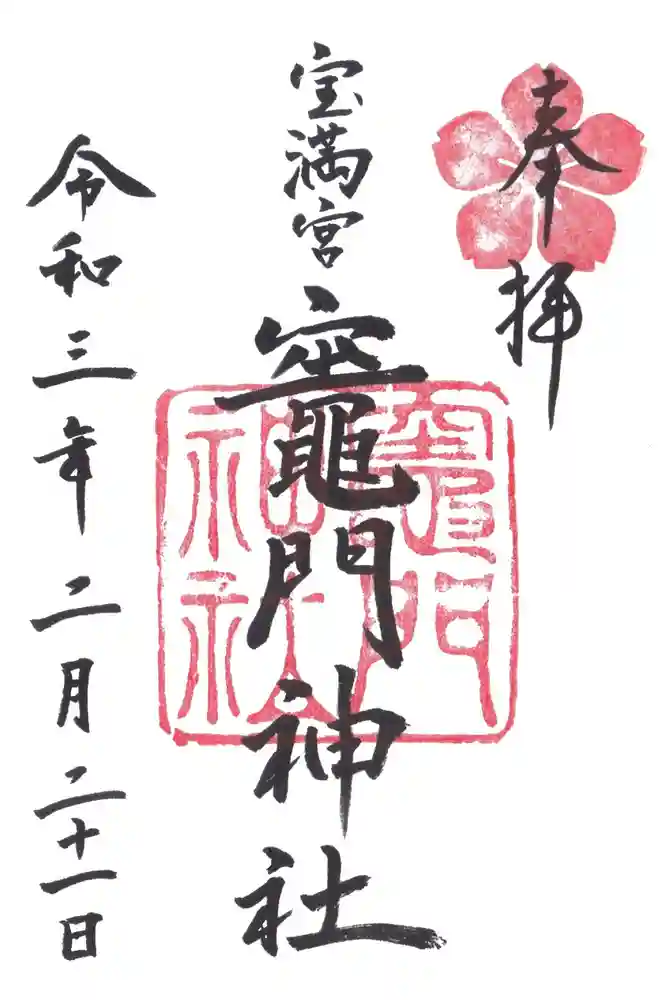 奉拝
宝満宮
竈門神社
竈門神社
令和三年二月二十一日